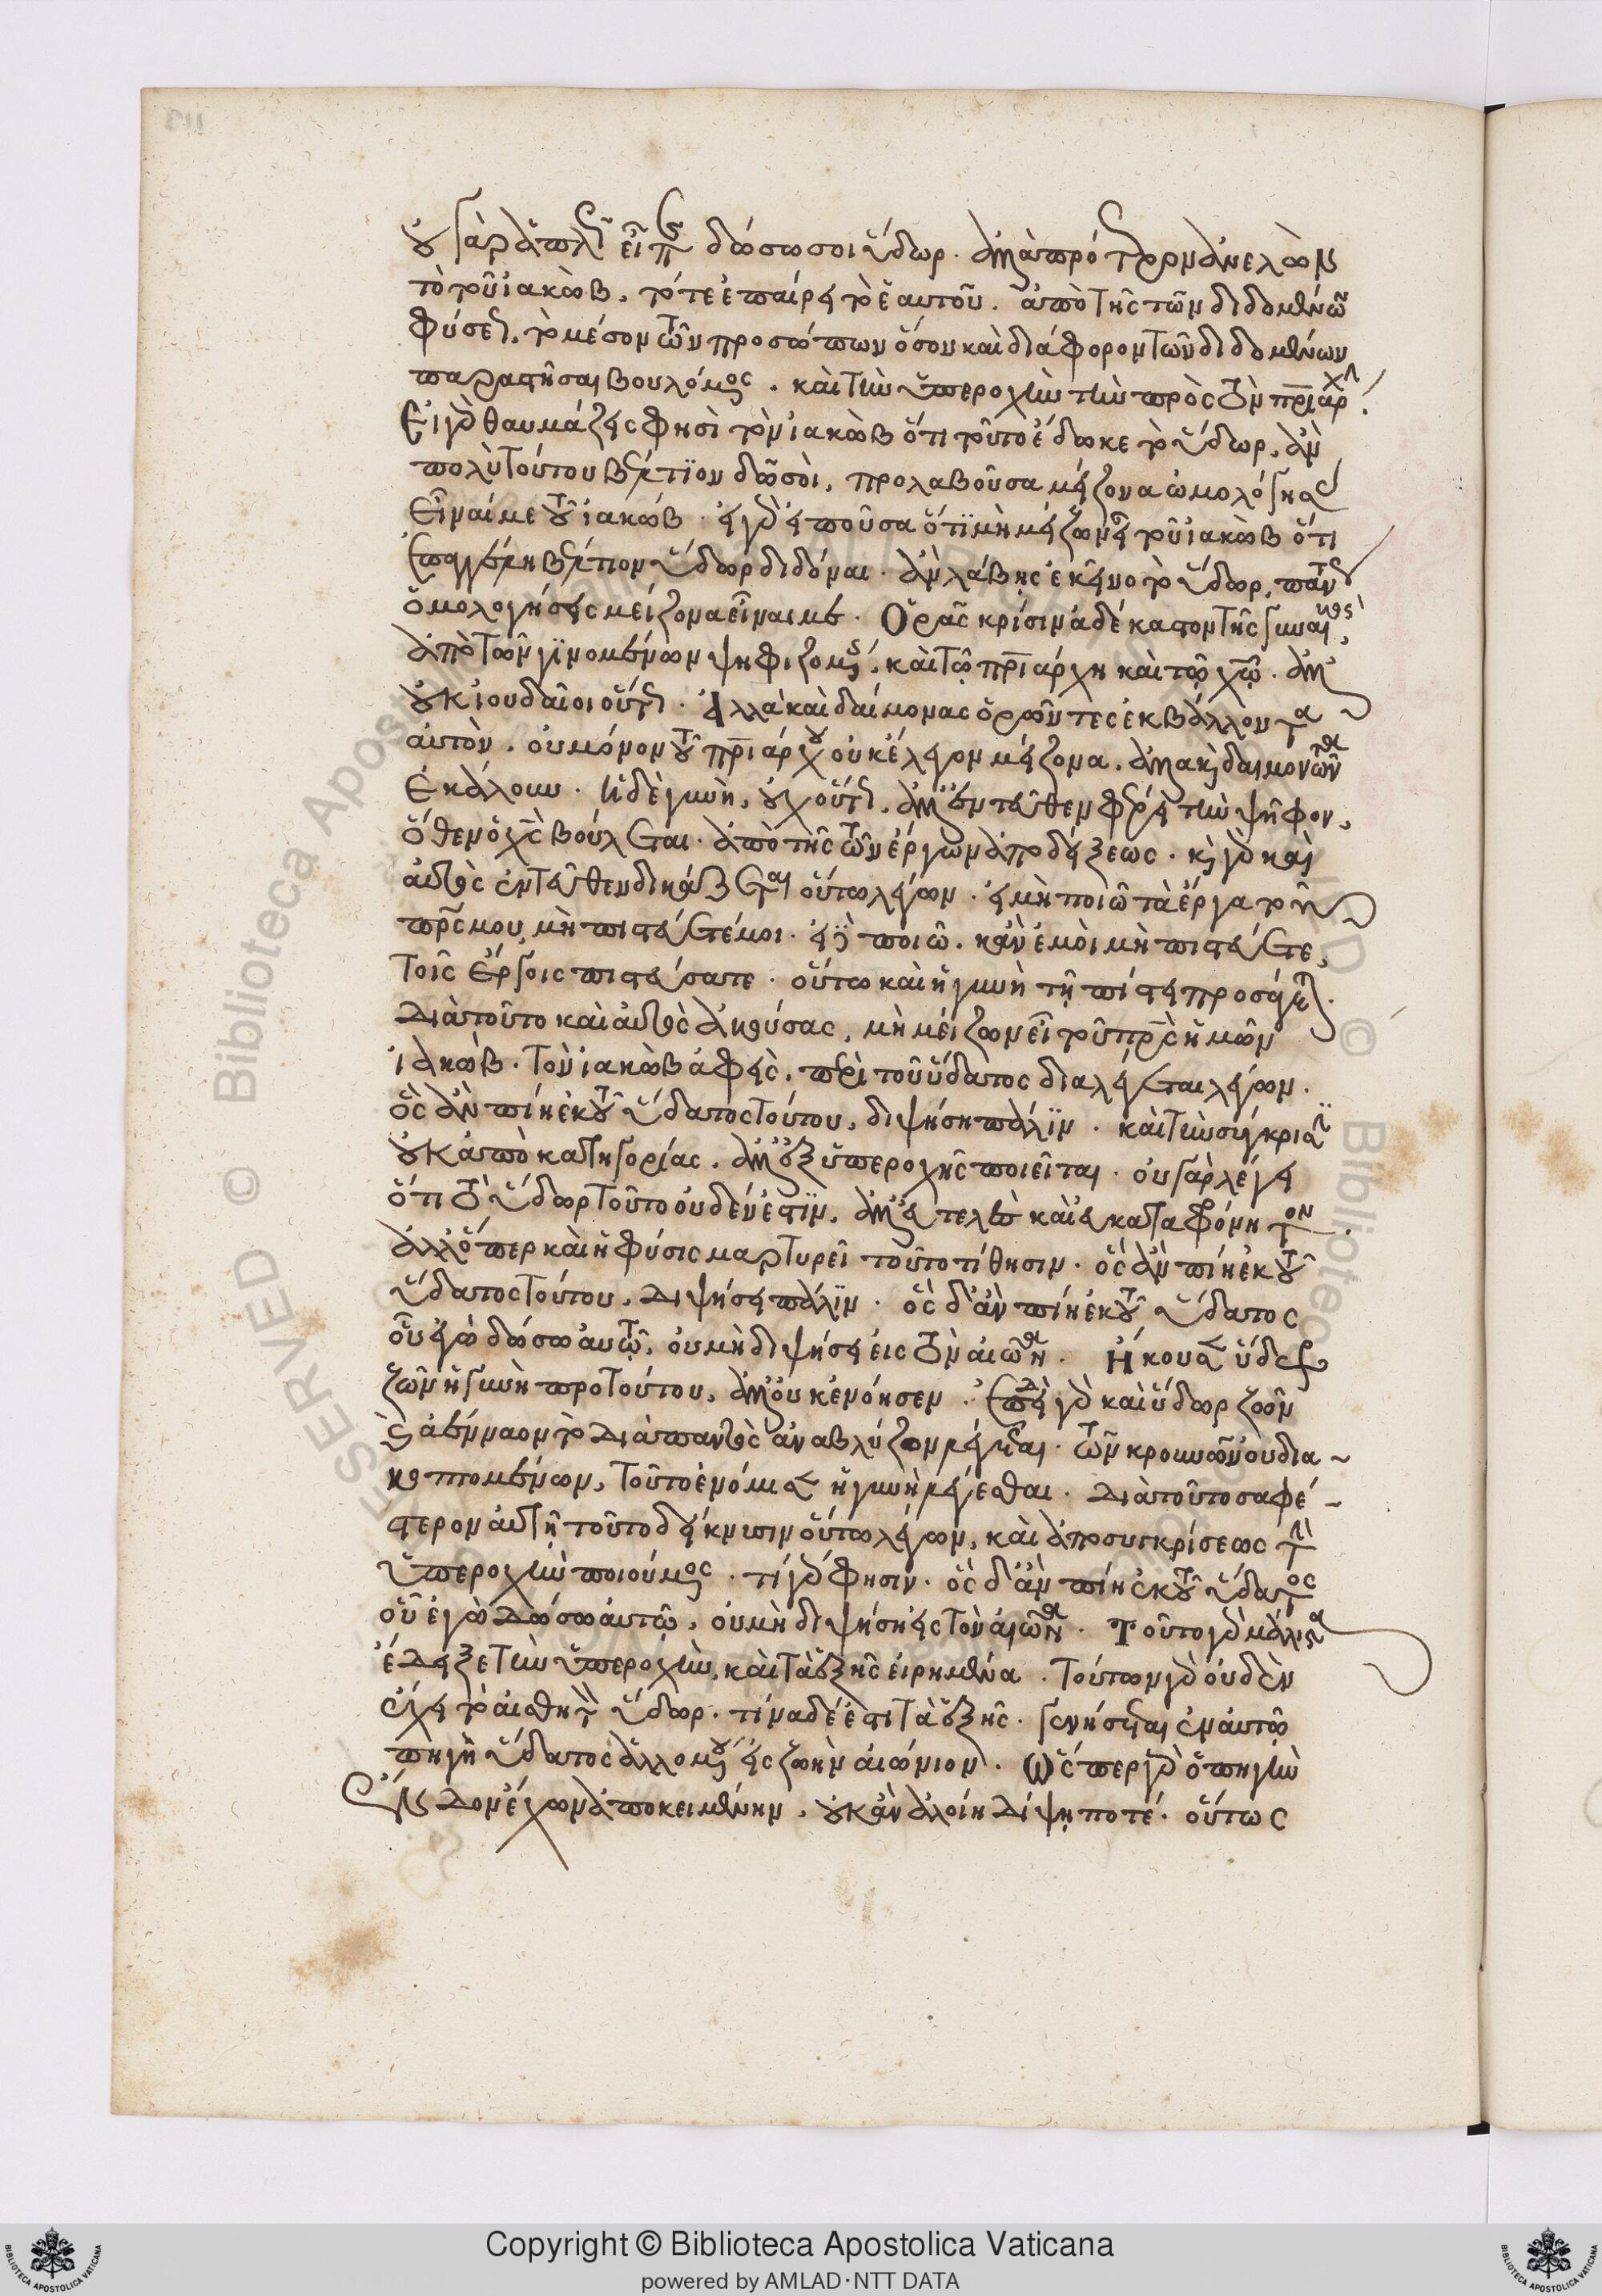 οὐ γὰρ ἁπλῶς εἶπε δώσω σοι ὕδωρ. ἀλλὰ πρότερον ἀνελὼν
τὸ τοῦ ἰακὼβ, τότε ἐπαίρει τὸ ἑαυτοῦ. ἀπὸ τῆς τῶν διδομένων
φύσεως, τὸ μέσον τῶν προσώπων ὅσον καὶ διάφορον τῶν διδομένων
παραστῆσαι βουλόμενος. καὶ τὴν ὑπεροχὴν τὴν πρὸς τὸν πατριάρχην.
Εἰ γὰρ θαυμάζεις φησὶ τὸν ἰακὼβ ὅτι τοῦτο ἔδωκε τὸ ὕδωρ, ἂν
πολὺ τούτου βέλτιον δῶ σοὶ, προλαβοῦσα μείζονα ὡμολόγησας
εἶναί με τοῦ ἰακώβ. εἰ γὰρ εἰποῦσα ὅτι μὴ μείζων εἶ τοῦ ἰακὼβ ὅτι
ἐπαγγέλλῃ βέλτιον ὕδωρ διδόναι. ἂν λάβῃς ἐκεῖνο τὸ ὕδωρ, πάντως
ὁμολογήσεις μείζονα εἶναι με. Ὁρᾷς κρίσιν ἀδέκαστον τῆς γυναικὸς,
ἀπὸ τῶν γινομένων ψηφιζομένης, καὶ τῷ πατριάρχῃ καὶ τῷ χῷ. ἀλλ'
οὐκ ἰουδαῖοι οὕτως. ἀλλὰ καὶ δαίμονας ὁρῶντες ἐκβάλλοντα
αὐτὸν, οὐ μόνον τοῦ πατριάρχου οὐκ ἔλεγον μείζονα, ἀλλὰ καὶ δαιμονῶντα
ἐκάλουν. ἡ δὲ γυνὴ, οὐχ οὕτως, ἀλλ' ἐντεῦθεν φέρει τὴν ψῆφον,
ὅθεν ὁ χς βούλεται. ἀπὸ τῆς τῶν ἔργων ἀποδείξεως. καὶ γὰρ καὶ
αὐτὸς ἐντεῦθεν δικάζεται οὕτω λέγων. εἰ μὴ ποιῶ τὰ ἔργα τοῦ
πρς μου, μὴ πιστεύετέ μοι. εἰ δὲ ποιῶ, κἂν ἐμοὶ μὴ πιστεύετε,
τοῖς ἔργοις πιστεύσατε. οὕτω καὶ ἡ γυνὴ τῇ πίστει προσάγεται.
Διὰ τοῦτο καὶ αὐτὸς ἀκούσας, μὴ μείζων εἶ τοῦ πρς ἡμῶν
ἰακώβ. τὸν ἰακὼβ ἀφεὶς, περὶ τοῦ ὕδατος διαλέγεται λέγων.
ὃς ἂν πίῃ ἐκ τοῦ ὕδατος τούτου, διψήσῃ πάλιν. καὶ τὴν σύγκρισιν
οὐκ ἀπὸ κατηγορίας, ἀλλ' ἐξ ὑπεροχῆς ποιεῖται. οὐ γὰρ λέγει
ὅτι τὸ ὕδωρ τοῦτο οὐδέν ἐστιν, ἀλλ' εὐτελὲς καὶ εὐκαταφρόνητον.
ἀλλ' ὅπερ καὶ ἡ φύσις μαρτυρεῖ τοῦτο τίθησιν. ὃς ἂν πίῃ ἐκ τοῦ
ὕδατος τούτου, διψήσει πάλιν. ὃς δ' ἂν πίῃ ἐκ τοῦ ὕδατος
οὗ ἐγὼ δώσω αὐτῷ, οὐ μὴ διψήσει εἰς τὸν αἰῶνα. Ἤκουσεν ὕδωρ
ζῶν ἡ γυνὴ πρὸ τούτου, ἀλλ' οὐκ ἐνόησεν. ἐπειδὴ γὰρ καὶ ὕδωρ ζῶν
τὸ ἀένναον τὸ διὰ παντὸς ἀναβλύζον λέγεται, τῶν κρουνῶν οὐ δια-
κοπτομένων, τοῦτο ἐνόμισεν ἡ γυνὴ λέγεσθαι. διὰ τοῦτο σαφέ-
στερον αὐτῇ τοῦτο δείκνυσιν οὕτω λέγων, καὶ ἀπὸ συγκρίσεως τὴν
ὑπεροχὴν ποιούμενος. τί γάρ φησιν. ὃς δ' ἂν πίῃ ἐκ τοῦ ὕδατος
οὗ ἐγὼ δώσω αὐτῷ, οὐ μὴ διψήσῃ εἰς τὸν αἰῶνα. Τοῦτο γὰρ μάλιστα
ἔδειξε τὴν ὑπεροχὴν, καὶ τὰ ἑξῆς εἰρημένα. τούτων γὰρ οὐδὲν
εἶχε τὸ αἰσθητὸν ὕδωρ. τίνα δέ ἐστι τὰ ἑξῆς. γενήσεται ἐν αὐτῷ
πηγὴ ὕδατος ἁλλομένου εἰς ζωὴν αἰώνιον. Ὥσπερ γὰρ ὁ πηγὴν
ἔνδον ἔχων ἀποκειμένην, οὐκ ἂν ἁλοίη δίψῃ ποτέ. οὕτως
Copyright © Biblioteca Apostolica Vaticana
powered by AMLAD·NTT DATA